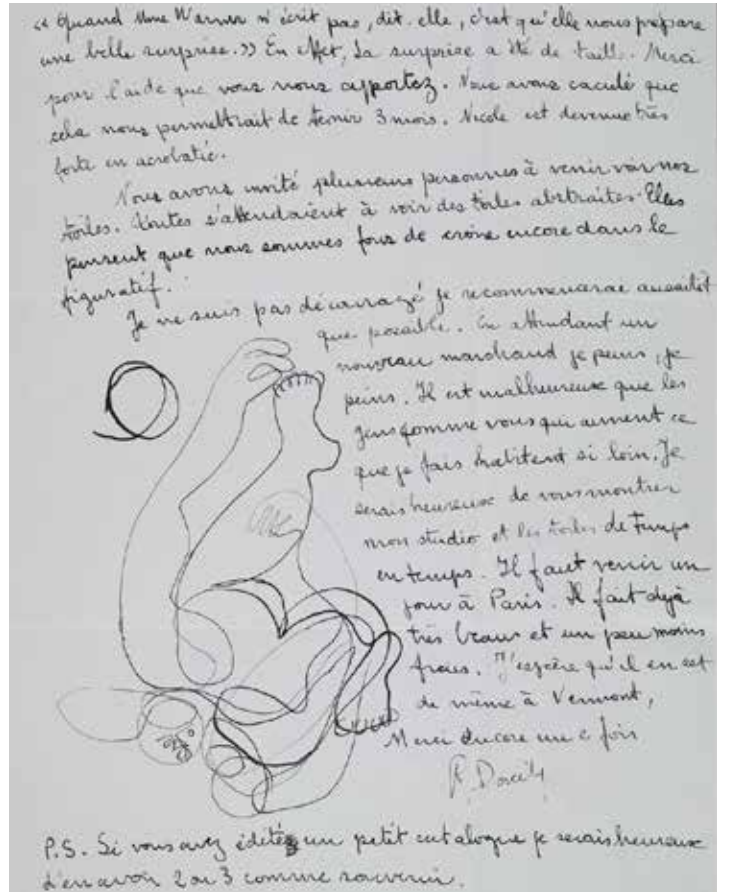 « Quand Mme Warner n'écrit pas, dit-elle, c'est qu'elle nous prépare
une belle surprise.» En effet, la surprise a été de taille. Merci
pour l'aide que vous nous apportez. Nous avons caculé que
cela nous permettrait de tenir 3 mois. Nicole est devenue très
forte en acrobatie.
Nous avons invité plusieurs personnes à venir voir nos
toiles. Toutes s'attendaient à voir des toiles abstraites. Elles
pensent que nous sommes fous de croire encore dans le
figuratif.
Je ne suis pas découragé je recommencerai aussitôt
que possible. En attendant un
nouveau marchand je peins, je
peins. Il est malheureux que les
gens comme vous qui aiment ce
que je fais habitent si loin. Je
serais heureux de vous montrer
mon studio et les toiles de temps
en temps. Il faut venir un
jour à Paris. Il fait déjà
très beau et un peu moins
frais. J'espère qu'il en est
de même à Vermont,
Merci encore une fois
P.S. Si vous avez édité un petit catalogue je serais heureux
d'en avoir 2 ou 3 comme souvenir.